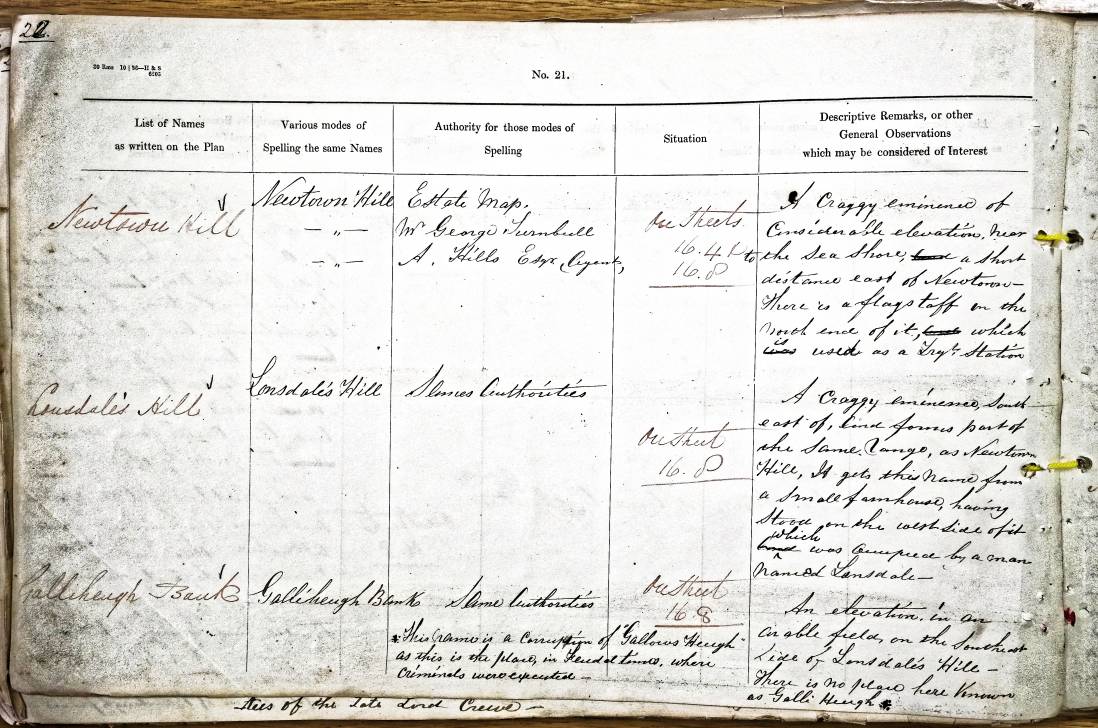 22.
20 Rms 10 | 56—H & S
6205
No. 21.
List of Names
as written on the Plan
Various modes of
Spelling the same Names
Authority for those modes of
Spelling
Situation
Descriptive Remarks, or other
General Observations
which may be considered of Interest
Newtown Hill
Newtown Hill
— „ —
— „ —
Estate Map.
Mr George Turnbull
A. Hills Esqr Agent,
On Sheets
16.4 & to
16.8
A Craggy eminence of
Considerable elevation, near
the Sea Shore, a short
distance east of Newtown—
There is a flagstaff on the
north end of it, which
is used as a Trigl. Station
Lonsdale's Hill
Lonsdale's Hill
Same Authorities
On Sheet
16.8
A Craggy eminence, South
east of, and forms part of
the same range, as Newtown
Hill, It gets this Name from
a small farmhouse, having
Stood on the west side of it
which
was occupied by a man
Named Lonsdale—
Galliheugh Bank
Galliheugh Bank
Same Authorities
On Sheet
16.8
An elevation, in an
arable field, on the Southeast
Side of Lonsdale's Hill—
There is no place here Known
as Galli Heugh *
* This name is a corruption of "Gallows Heugh"
as this is the place, in Feudal times, where
Criminals were executed—
—tees of the late Lord Crewe—